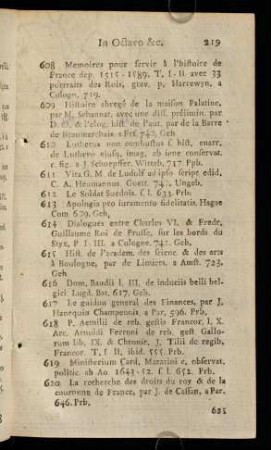 In Octavo &c. 219
608 Memoires pour servir à l'histoire de
France dep. 1515-1589. T. I-II avec 33
portraits des Rois, grav. p. Harrewyn, a
Cologn. 719.
609 Histoire abregé de la maison Palatine,
par M. Schannat, avec une diss. prélimin. par
D. O. & l'elog. hist. de l'aut. par de la Barre
de Beaumarchais. a Frf. 740. Geb
610 Lutherus non combustus s. hist. enarr.
de Lutheri ejusq. imag. ab igne conservat.
c. fig. a J. Schoepffer. Witteb. 717 Ppb.
611 Vita G. M. de Ludolf ad ipso script edid.
C. A. Heumannus. Goett. 74 . Ungeb.
612 Le Soldat Suedois. s. l. 633. Prb.
613 Apologia pro iuramento fidelitatis. Hagae
Com 609. Geh,
614 Dialogues entre Charles VI. & Frede,
Guillaume Roi de Prusse, sur les bords du
Styx, P. I. III. a Cologne. 741. Geb.
615 Hist. de l'academ. des scienc. & des arts
à Boulogne, par de Limiers. a Amst. 723.
Geh
616 Dom. Baudii l. III. de induciis belli bel-
gici Lugd. Bat. 617. Geb.
617 Le guidon general des Finances, par J.
Hennequin Champenois. a Par. 596. Prb.
618 P. Aemilii de reb. gestis Francor. l. X.
Acc. Arnoldi Ferroni de reb. gest Gallo-
rum lib. IX. & Chronic. J. Tilii de regib,
Francor. T. I. II, ibid. 555. Prb.
619 Ministerium Card. Mazarini c. observat.
politic. ab Ao. 1643-52. s. l. 652. Prb.
620 La recherche des droits du roy & de la
couronne de France, par J. de Cassan. a Par.
646. Prb.
621